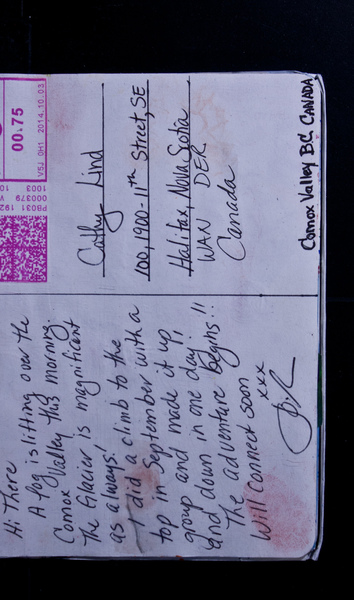 Hi There
A fog is lifting over the
Comox Valley this morning.
The Glacier is magnificent
as always.
I did a climb to the
top in September with a
group and made it up,
and down in one day.
The adventure begins!!
Will connect soon
xxx
00.75
V5J 0H1 2014.10.03
Cathy Lind
100, 1900-11th Street, SE
Halifax, Nova Scotia
WAN DER
Canada
Comox Valley BC, CANADA